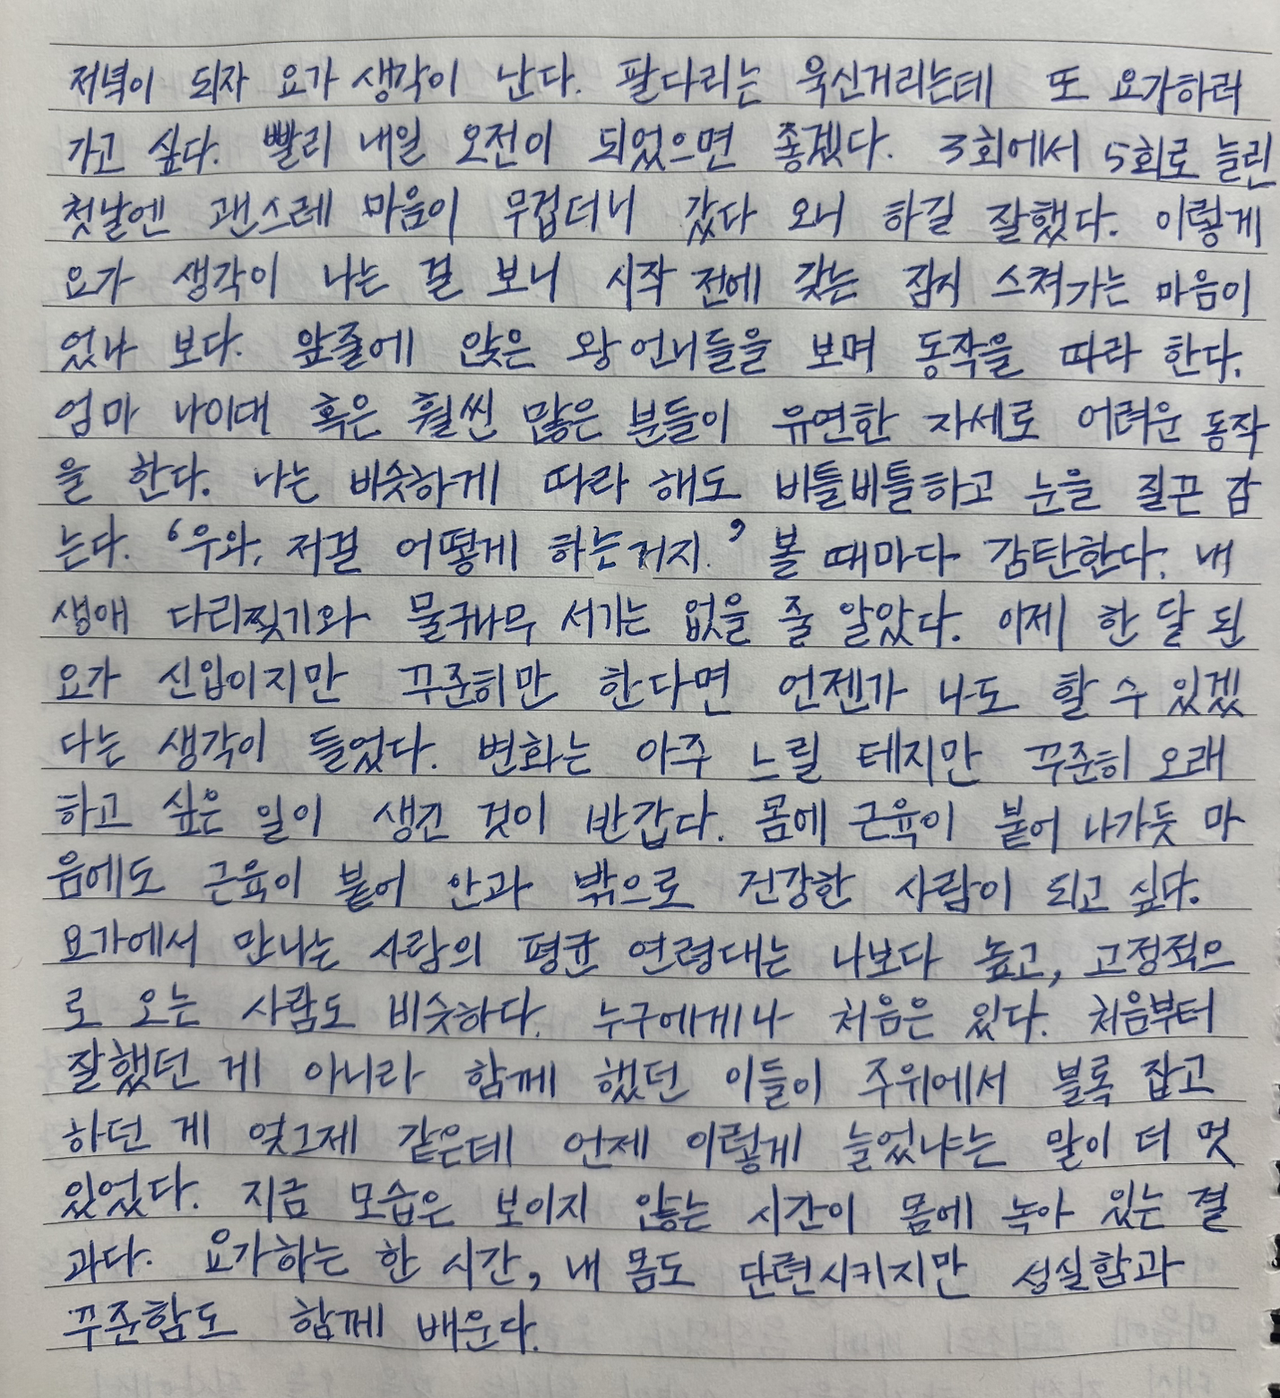 저녁이 되자 요가 생각이 난다. 팔다리는 욱신거리는데 또 요가하러
가고 싶다. 빨리 내일 오전이 되었으면 좋겠다. 3회에서 5회로 늘린
첫날엔 괜스레 마음이 무겁더니 갔다 오니 하길 잘했다. 이렇게
요가 생각이 나는 걸 보니 시작 전에 갖는 잠시 스쳐가는 마음이
었나 보다. 앞줄에 앉은 왕언니들을 보며 동작을 따라 한다.
엄마 나이대 혹은 훨씬 많은 분들이 유연한 자세로 어려운 동작
을 한다. 나는 비슷하게 따라 해도 비틀비틀하고 눈을 질끈 감
는다. ‘우와, 저걸 어떻게 하는거지.’ 볼 때마다 감탄한다. 내
생애 다리찢기와 물구나무 서기는 없을 줄 알았다. 이제 한 달 된
요가 신입이지만 꾸준히만 한다면 언젠가 나도 할 수 있겠
다는 생각이 들었다. 변화는 아주 느릴 테지만 꾸준히 오래
하고 싶은 일이 생긴 것이 반갑다. 몸에 근육이 붙어 나가듯 마
음에도 근육이 붙어 안과 밖으로 건강한 사람이 되고 싶다.
요가에서 만나는 사람의 평균 연령대는 나보다 높고, 고정적으
로 오는 사람도 비슷하다. 누구에게나 처음은 있다. 처음부터
잘했던 게 아니라 함께 했던 이들이 주위에서 블록 잡고
하던 게 엊그제 같은데 언제 이렇게 늘었냐는 말이 더 멋
있었다. 지금 모습은 보이지 않는 시간이 몸에 녹아 있는 결
과다. 요가하는 한 시간, 내 몸도 단련시키지만 성실함과
꾸준함도 함께 배운다.